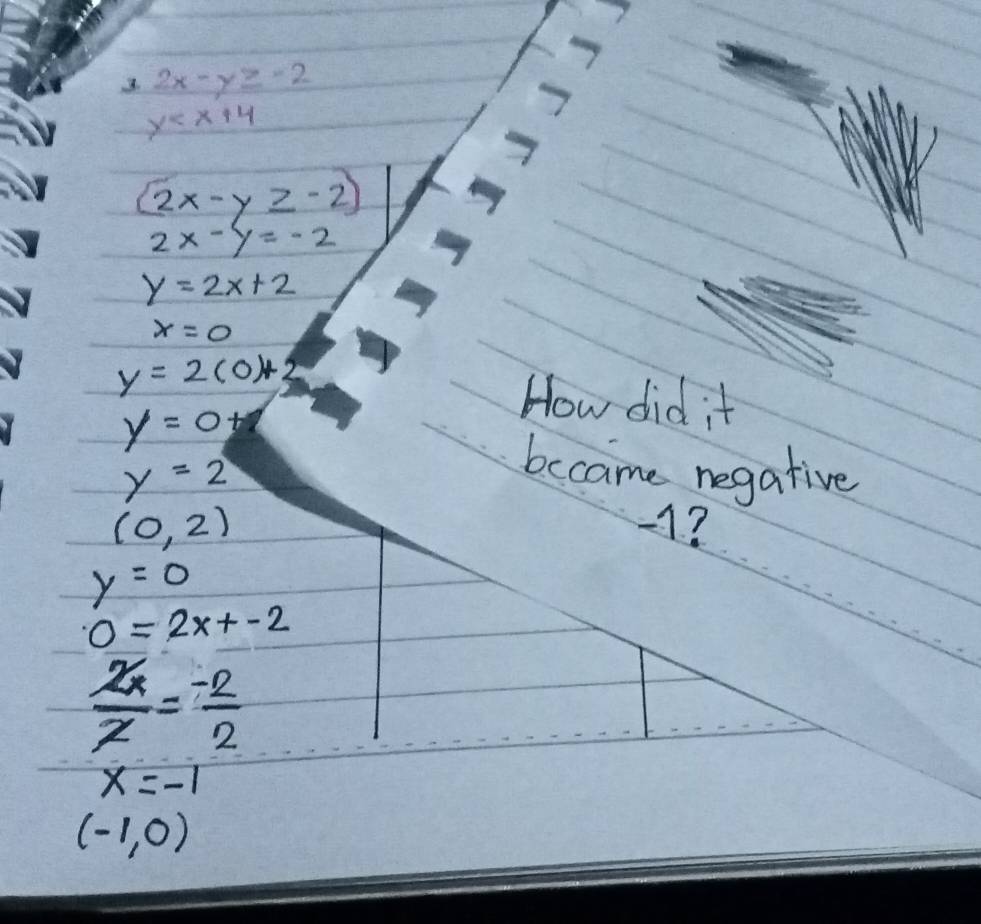 3. 2x - y ≥ -2
y < x + 4
(2x - y ≥ -2)
2x - y = -2
y = 2x + 2
x = 0
y = 2(0) + 2
y = 0 + 2
y = 2
(0, 2)
y = 0
0 = 2x + -2
2x/2 = -2/2
x = -1
(-1, 0)
How did it
became negative
-1?